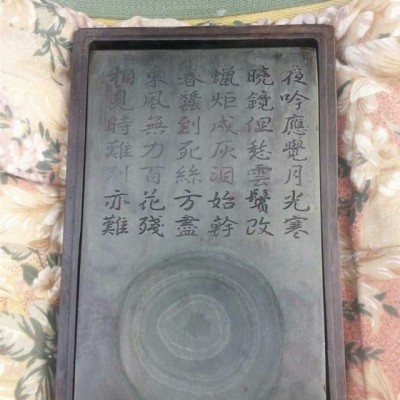 相見時難别亦難
東風無力百花殘
春蠶到死絲方盡
蠟炬成灰泪始幹
晓鏡但愁雲鬢改
夜吟應覺月光寒